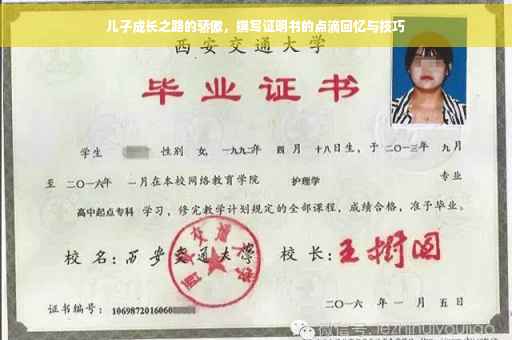 儿子成长之路的骄傲，撰写证明书的点滴回忆与技巧
西安交通大学
毕业证书
学生 性别 女，一九九二年 四 月 十八日生，于 二〇一三年 九 月
至 二〇一六年 一月在本校网络教育学院 护理学 专业
高中起点专科 学习，修完教学计划规定的全部课程，成绩合格，准予毕业。
校 名：西安交通大学 校 长：王树国
西安交通大学
证书编号：1069872016060
二〇一六 年 一 月 五 日
微信号: jiezhihuiyoujiao